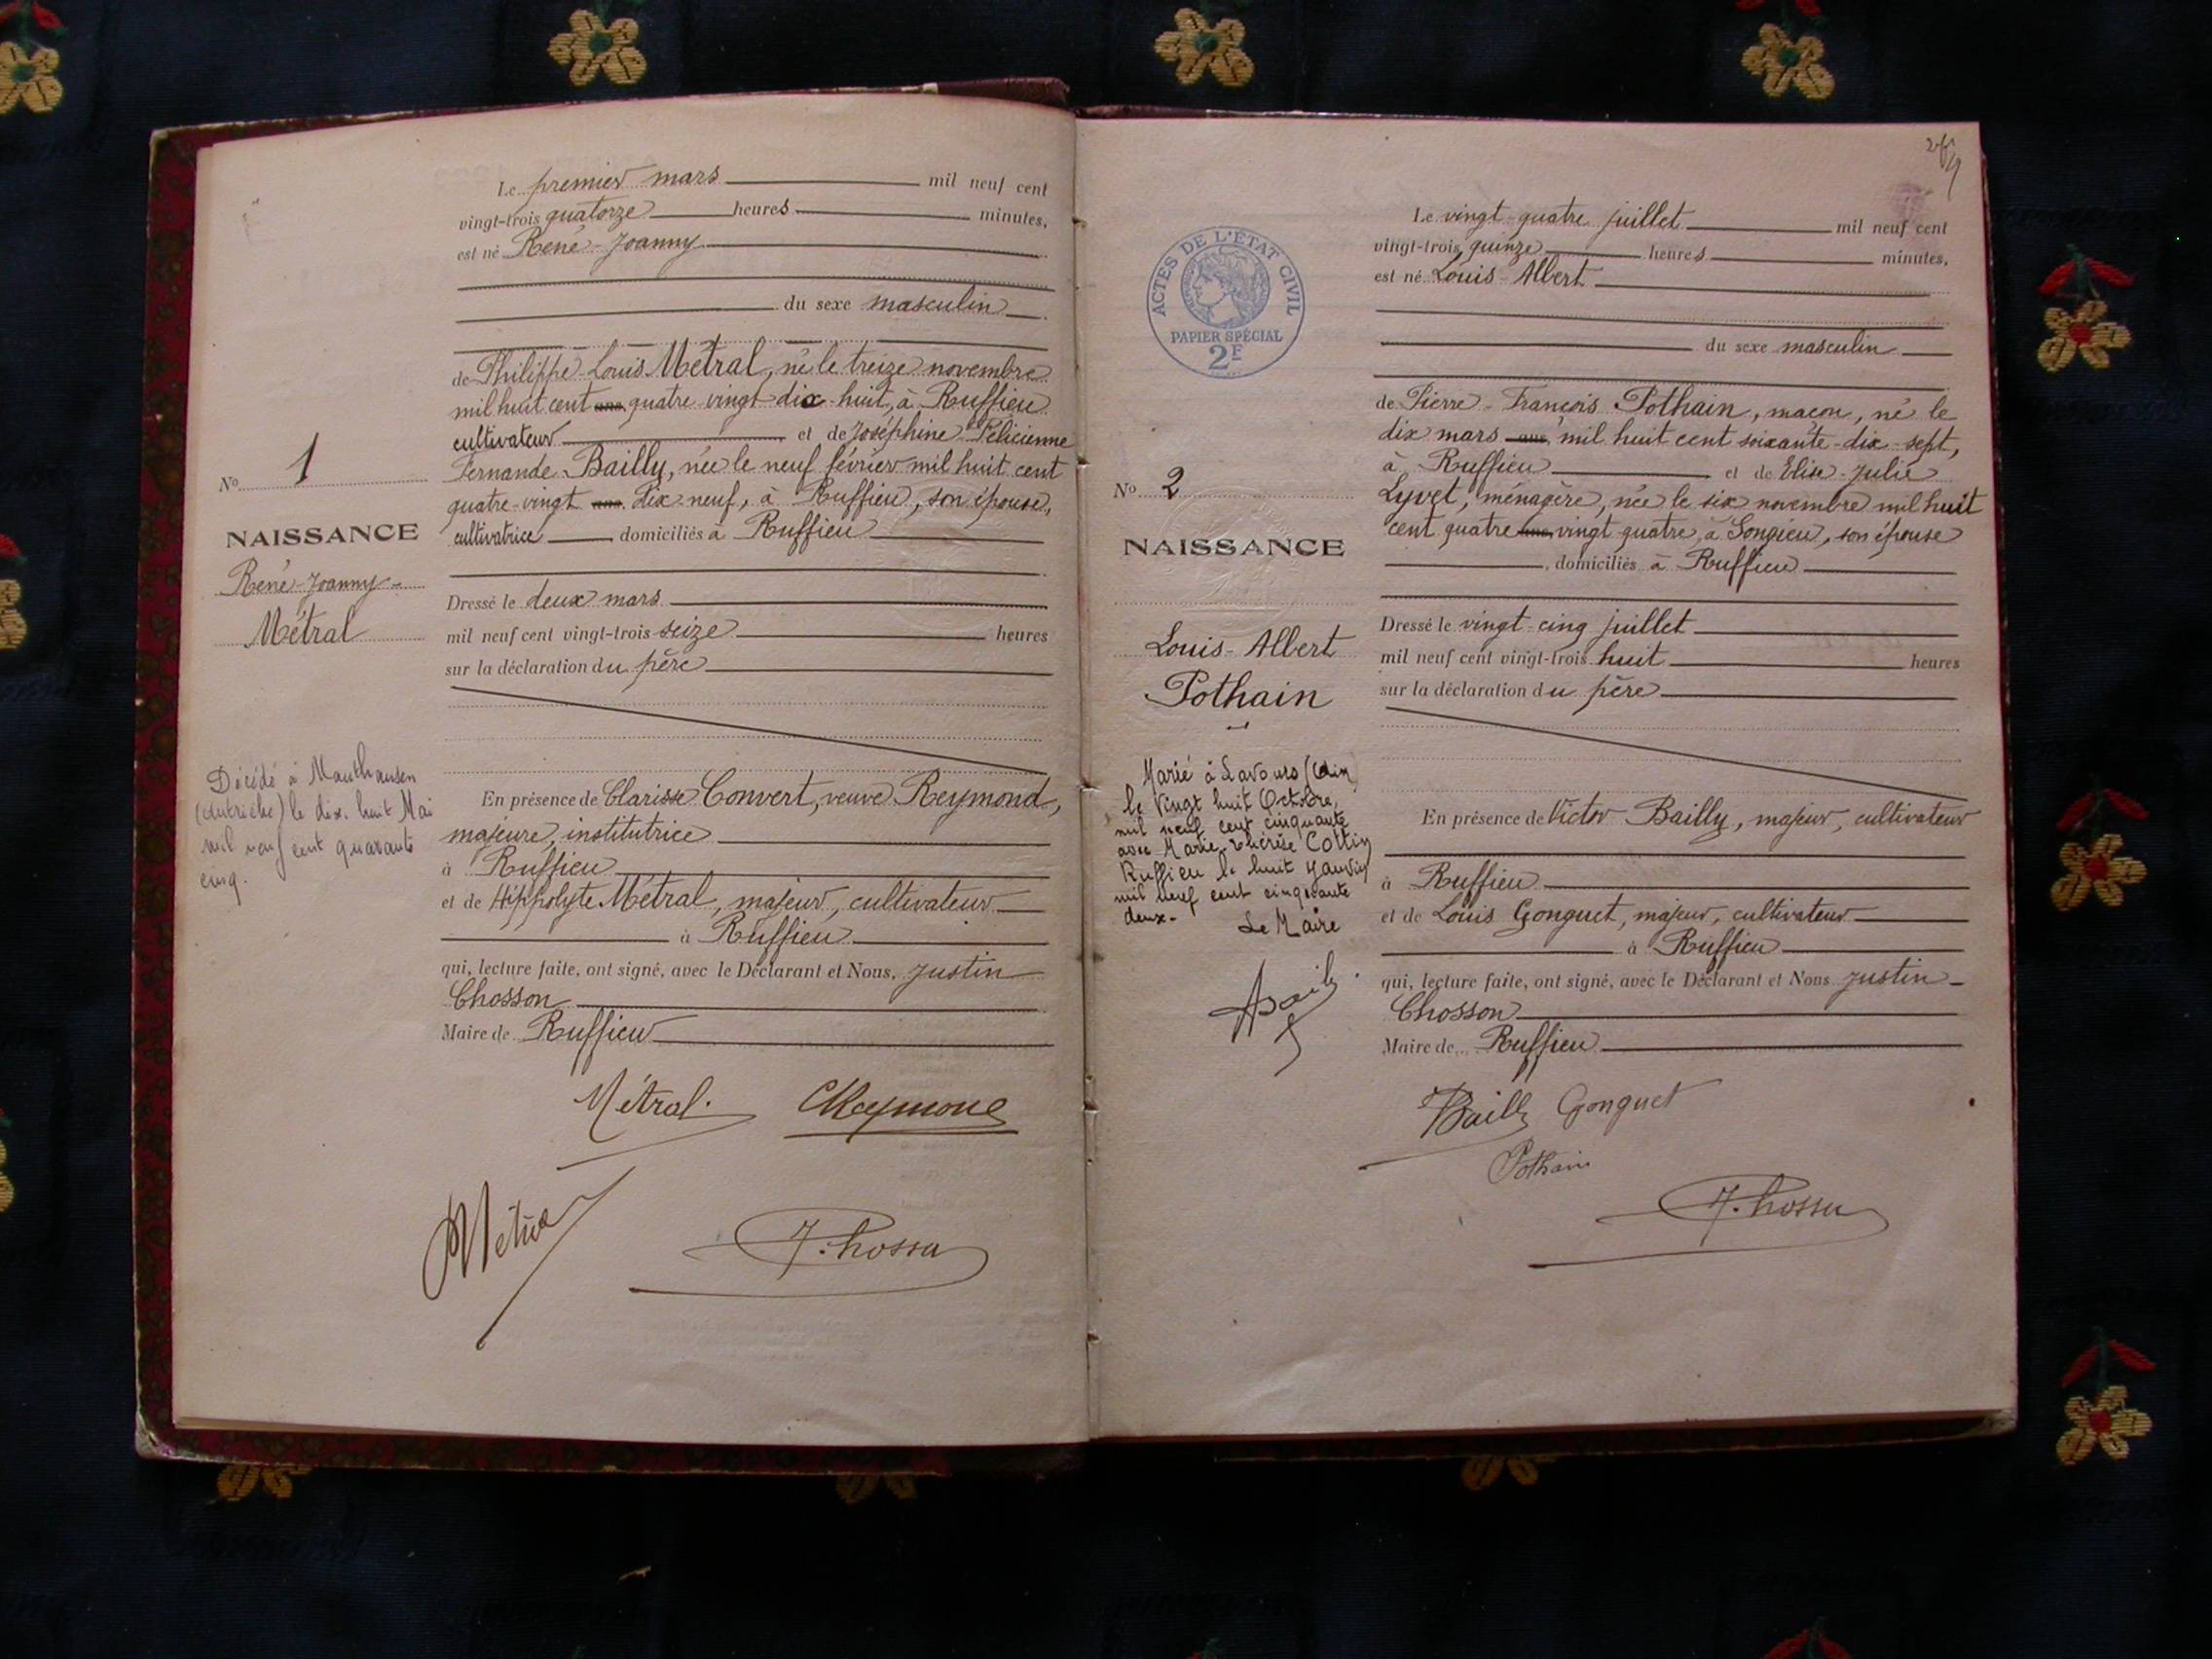 Le premier mars mil neuf cent
vingt-trois quatorze heures minutes,
est né René-Joanny
du sexe masculin
de Philippe Louis Métral, né le treize novembre
mil huit cent ans quatre-vingt-dix-huit, à Ruffieu
cultivateur et de Joséphine Félicienne
Fernande Bailly, née le neuf février mil huit cent
quatre-vingt ans dix-neuf, à Ruffieu, son épouse,
cultivatrice domiciliés à Ruffieu
Dressé le deux mars
mil neuf cent vingt-trois seize heures
sur la déclaration du père
En présence de Clarisse Convert, veuve Reymond,
majeure, institutrice
à Ruffieu
et de Hippolyte Métral, majeur, cultivateur
à Ruffieu
qui, lecture faite, ont signé, avec le Déclarant et Nous, Justin
Chosson
Maire de Ruffieu
Métral. CReymond
Métral
No 1
NAISSANCE
René-Joanny
Métral
Décédé à Mauthausen
(Autriche) le dix-huit Mai
mil neuf cent quarante
cinq.
ACTES DE L'ÉTAT CIVIL
PAPIER SPÉCIAL
2F
Le vingt-quatre juillet mil neuf cent
vingt-trois, quinze heures minutes,
est né Louis-Albert
du sexe masculin
de Pierre-François Pothain, maçon, né le
dix mars ans mil huit cent soixante-dix-sept,
à Ruffieu et de Elise-Julie
Lyvet, ménagère, née le six novembre mil huit
cent quatre ans vingt quatre, à Songieu, son épouse
, domiciliés à Ruffieu
Dressé le vingt-cinq juillet
mil neuf cent vingt-trois huit heures
sur la déclaration du père
En présence de Victor Bailly, majeur, cultivateur
à Ruffieu
et de Louis Gonguet, majeur, cultivateur
à Ruffieu
qui, lecture faite, ont signé, avec le Déclarant et Nous Justin
Chosson
Maire de Ruffieu
Bailly Gonguet
Pothain
No 2
NAISSANCE
Louis-Albert
Pothain
Marié à Lavours (Ain)
le Vingt huit Octobre,
mil neuf cent cinquante
avec Marie-Thérèse Cottin
Ruffieu le huit Janvier
mil neuf cent cinquante
deux-
Le Maire